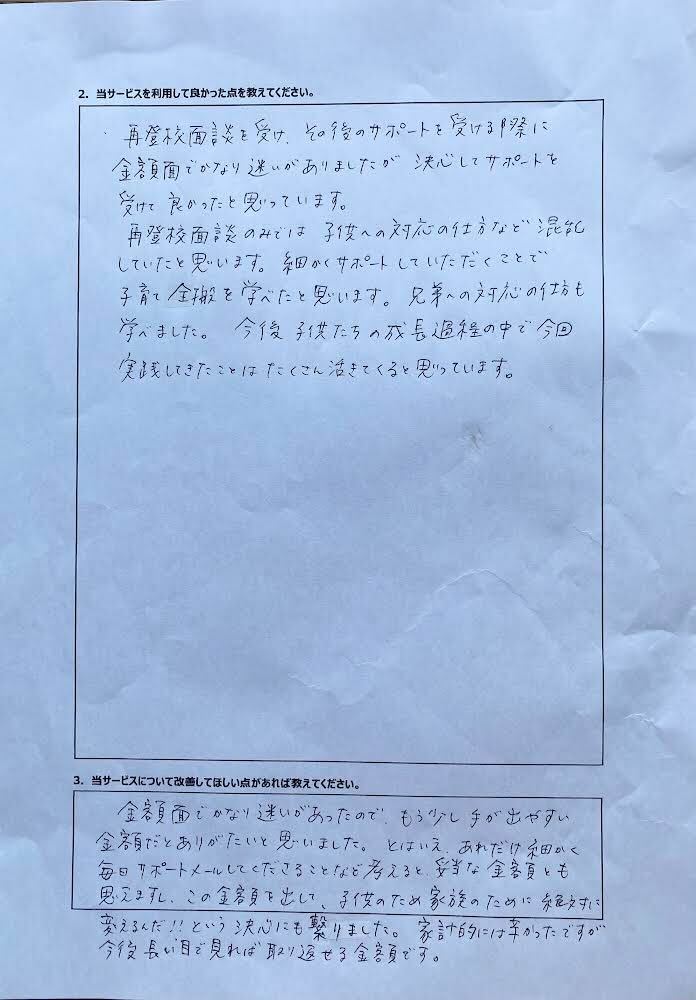 2．当サービスを利用して良かった点を教えてください。
再登校面談を受け、その後のサポートを受ける際に
金額面でかなり迷いがありましたが 決心してサポートを
受けて良かったと思っています。
再登校面談のみでは 子供への対応の仕方など混乱
していたと思います。細かくサポートしていただくことで
子育て全般を学べたと思います。兄弟への対応の仕方も
学べました。 今後子供たちの成長過程の中で今回
実践してきたことはたくさん活きてくると思っています。
3．当サービスについて改善してほしい点があれば教えてください。
金額面でかなり迷いがあったので、もう少し手が出やすい
金額だとありがたいと思いました。とはいえ、あれだけ細かく
毎日サポートメールしてくださることなど考えると、妥当な金額とも
思えますし、この金額を出して、子供のため家族のために絶対に
変えるんだ!!という決心にも繋りました。 家計的には辛かったですが
今後長い目で見れば取り返せる金額です。